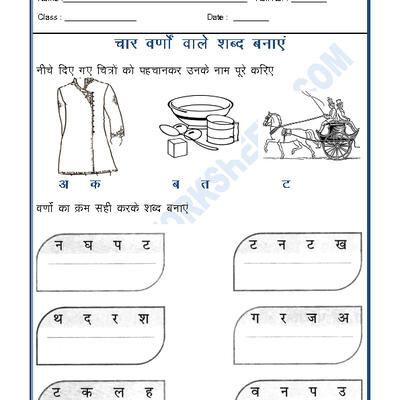 Class : Date :
चार वर्णों वाले शब्द बनाएं
नीचे दिए गए चित्रों को पहचानकर उनके नाम पूरे करिए
अ क ब त ट
वर्णों का क्रम सही करके शब्द बनाएं
न घ प ट ट न ट ख
थ द र श ग र ज अ
ट क ल ह व न प उ